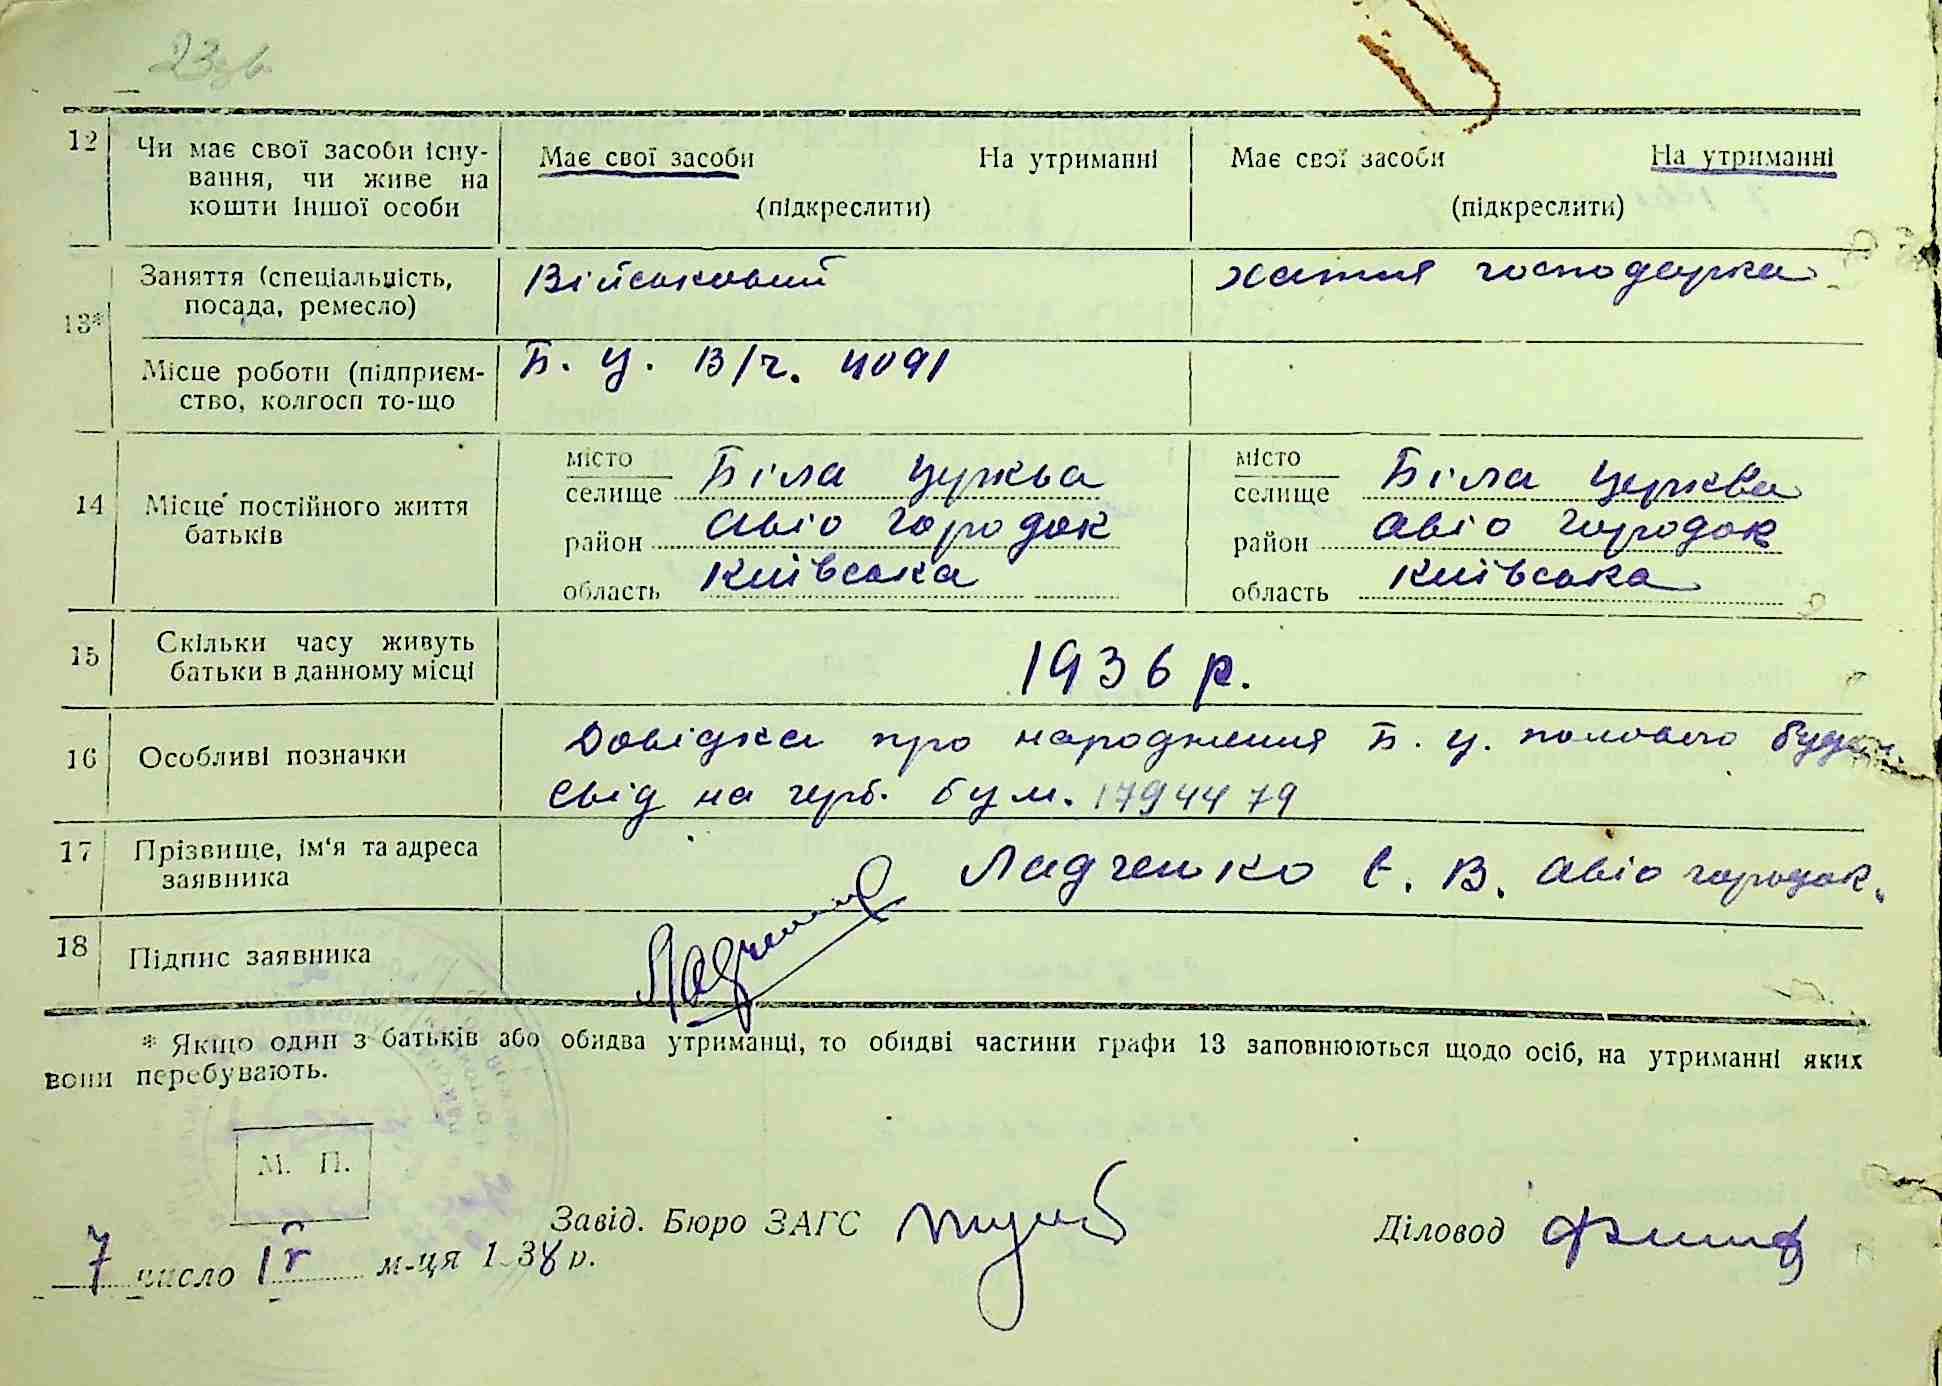 23зв
12 Чи має свої засоби існу- Має свої засоби На утриманні Має свої засоби На утриманні
вання, чи живе на
кошти іншої особи (підкреслити) (підкреслити)
Заняття (спеціальність, Військовий хатня господарка
посада, ремесло)
13*
Місце роботи (підприєм- Б. Ц. В/ч. 4091
ство, колгосп то-що
місто Біла Церква місто Біла Церква
14 Місце постійного життя селище селище
батьків район Авіо городок район Авіо городок
область Київська область Київська
15 Скільки часу живуть 1936 р.
батьки в данному місці
16 Особливі позначки Довідка про народження Б. Ц. полового
Свід на герб. бум. 1794479
17 Прізвище, ім'я та адреса Ладченко Є. В. Авіо городок.
заявника
18 Підпис заявника
* Якщо один з батьків або обидва утриманці, то обидві частини графи 13 заповнюються щодо осіб, на утриманні яких
вони перебувають.
М. П.
Завід. Бюро ЗАГС Діловод
7 число м-ця 1938 р.